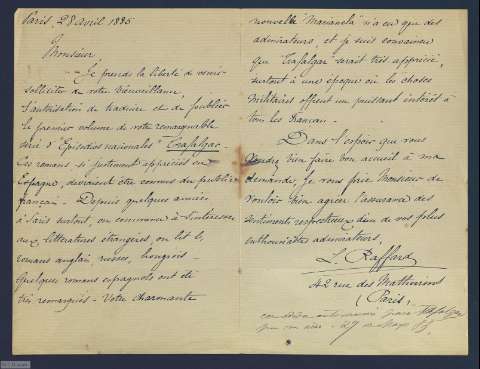 Paris, 28 avril 1885
Monsieur,
Je prends la liberté de venir
solliciter de votre bienveillance,
l'autorisation de traduire et de publier
le premier volume de votre remarquable
série d'"Episodios nationales" Trafalgar.
Ces romans, si justement appréciés en
Espagne, devraient être connus du public
français - Depuis quelques années
à Paris surtout, on commence à s'intéresser
aux littératures étrangères, on lit les
romans anglais russes, hongrois -
Quelques romans espagnols ont été
très remarqués - Votre charmante
nouvelle "Marianela" n'a eu que des
admirateurs, et je suis convaincu
que Trafalgar serait très apprécié,
surtout à une époque où les choses
militaires offrent un puissant intérêt à
tous les français -
Dans l'espoir que vous
bien faire bon accueil à ma
demande, je vous prie Monsieur de
vouloir bien agréer l'assurance des
sentiments respectueux d'un de vos plus
enthousiastes admirateurs,
L. Rafford
42 rue des Mathurins
(Paris)
Trafalgar